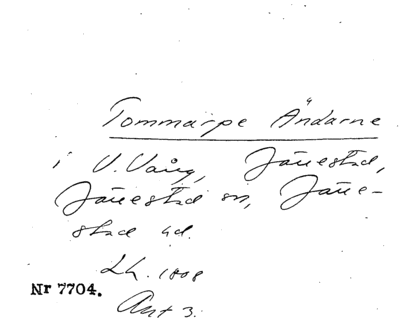 Tommarpe Ändarne
i V. Vång, Järrestad,
Järrestad sn, Järre-
stad hd.
Lh. 1808
Nr 7704.
Akt 3.